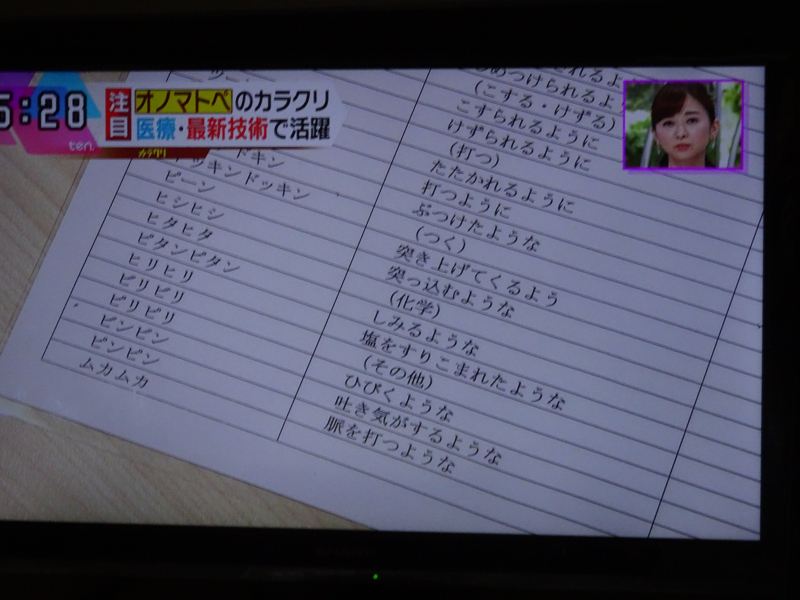 5:28
ten.
注目
オノマトペのカラクリ
医療・最新技術で活躍
ドキン
ッキンドッキン
ピーン
ヒシヒシ
ヒタヒタ
ピタンピタン
ヒリヒリ
ビリビリ
ピリピリ
ビンビン
ピンピン
ムカムカ
めつけられるよ
(こする・けずる)
こすられるように
けずられるように
(打つ)
たたかれるように
打つように
ぶつけたような
(つく)
突き上げてくるよう
突っ込むような
(化学)
しみるような
塩をすりこまれたような
(その他)
ひびくような
吐き気がするような
脈を打つような